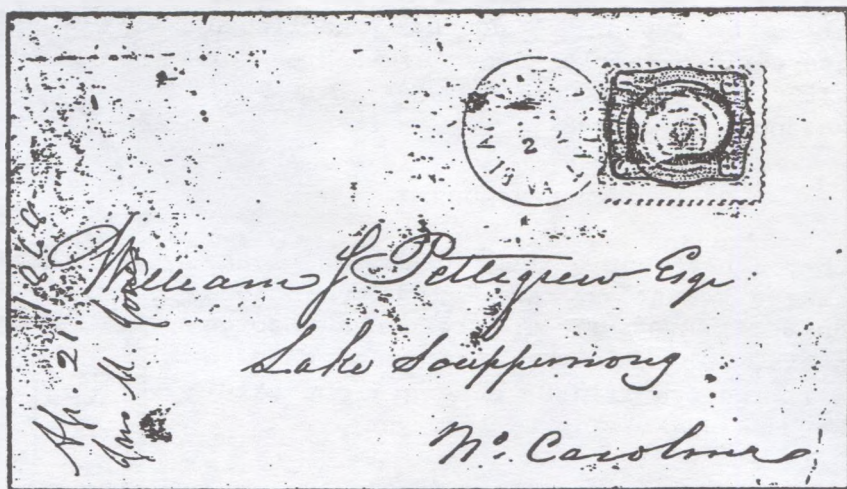 2
VA
William J Pettigrew Esqr
Lake Scuppernong
No. Carolina
Ap. 21. 1868